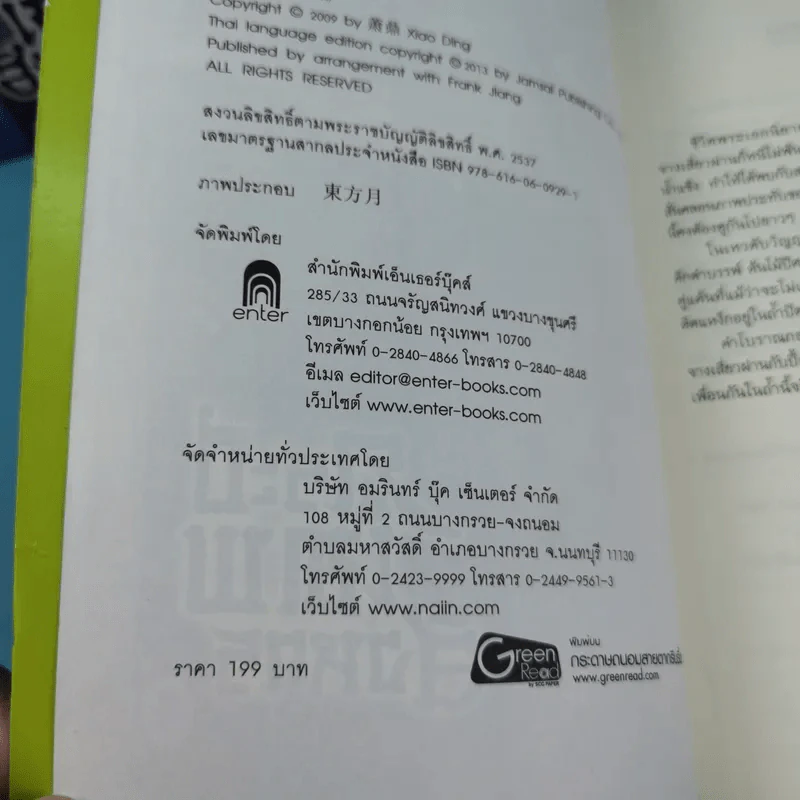 Copyright © 2009 by 蕭鼎 Xiao Ding
Thai language edition copyright © 2013 by Jamsai Publishing
Published by arrangement with Frank Jiang
ALL RIGHTS RESERVED
สงวนลิขสิทธิ์ตามพระราชบัญญัติลิขสิทธิ์ พ.ศ. 2537
เลขมาตรฐานสากลประจำหนังสือ ISBN 978-616-06-0929-1
ภาพประกอบ 東方月
จัดพิมพ์โดย
enter
สำนักพิมพ์เอ็นเธอร์บุ๊คส์
285/33 ถนนจรัญสนิทวงศ์ แขวงบางขุนศรี
เขตบางกอกน้อย กรุงเทพฯ 10700
โทรศัพท์ 0-2840-4866 โทรสาร 0-2840-4848
อีเมล editor@enter-books.com
เว็บไซต์ www.enter-books.com
จัดจำหน่ายทั่วประเทศโดย
บริษัท อมรินทร์ บุ๊ค เซ็นเตอร์ จำกัด
108 หมู่ที่ 2 ถนนบางกรวย-จงถนอม
ตำบลมหาสวัสดิ์ อำเภอบางกรวย จ.นนทบุรี 11130
โทรศัพท์ 0-2423-9999 โทรสาร 0-2449-9561-3
เว็บไซต์ www.naiin.com
ราคา 199 บาท
Green Read
by SCG PAPER
พิมพ์บน
กระดาษถนอมสายตากรีนรี้ด
www.greenread.com